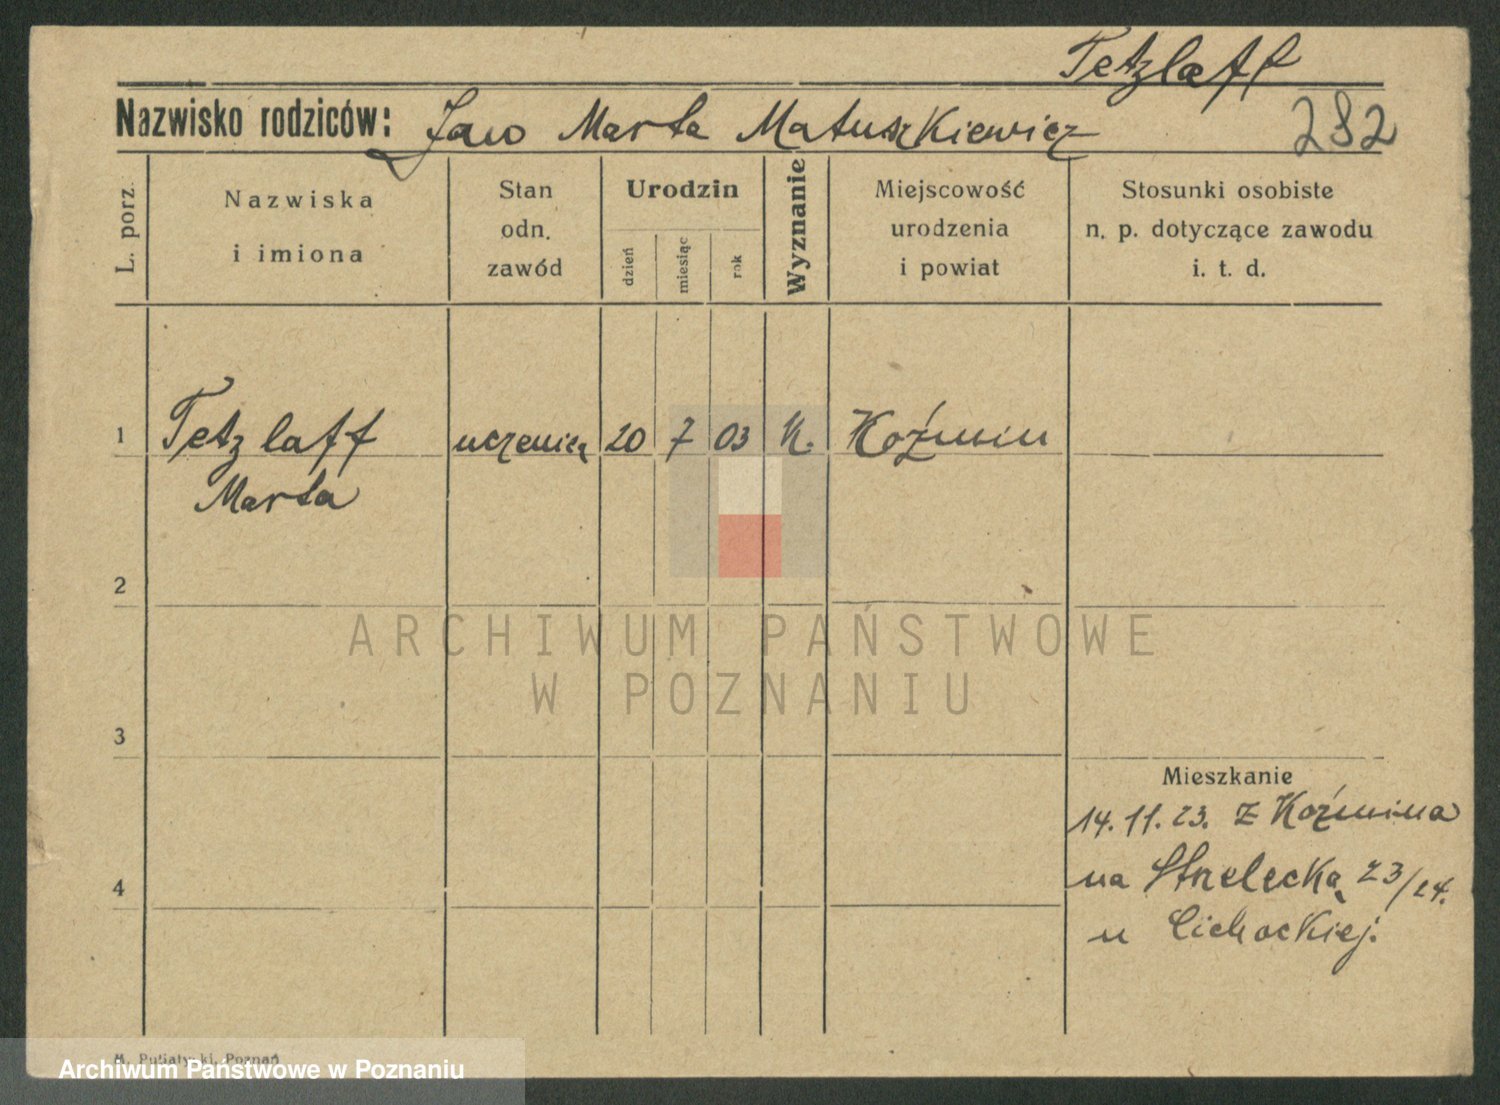 Tetzlaff
Nazwisko rodziców: Jan Marta Matuszkiewicz 282
L. porz.
Nazwiska
i imiona
Stan
odn.
zawód
Urodzin
dzień
miesiąc
rok
Wyznanie
Miejscowość
urodzenia
i powiat
Stosunki osobiste
n. p. dotyczące zawodu
i. t. d.
1 Tetzlaff uczenica 20 7 03 K. Koźmin
Marta
2
3
Mieszkanie
14.11.23. z Koźmina
4
na Strzelecką 23/24.
u Cichockiej.
ARCHIWUM PAŃSTWOWE
W POZNANIU
M. Putiatycki, Poznań
Archiwum Państwowe w Poznaniu